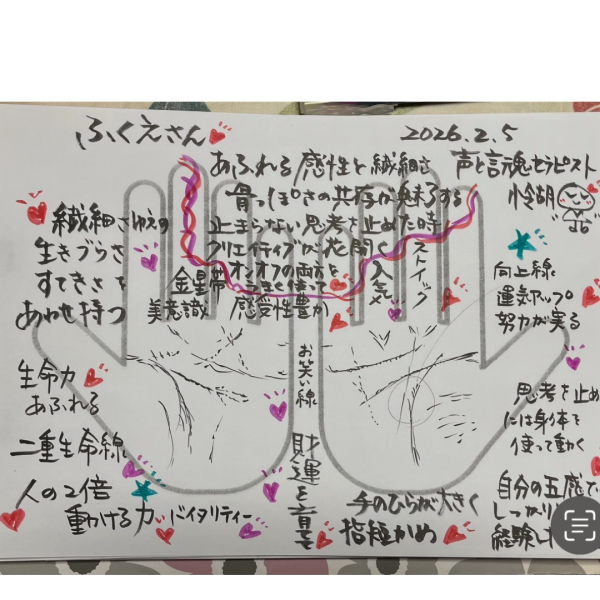 ふくえさん
2026.2.5
あふれる感性と繊細さ
声と言魂セラピスト
怜胡
骨っぽさの共存が魅了する
繊細さゆえの
生きづらさ
すてきさを
あわせ持つ
止まらない思考を止めた時
クリエイティブが花開く
オンオフの両方を
うまく使って
人気
ストイック
金星帯
美意識
感受性豊か
向上線
運気アップ
努力が実る
お笑い線
生命力
あふれる
二重生命線
人の2倍
動かける力
バイタリティー
財運を育て
手のひらが大きく
指短かめ
思考を止め
には身体を
使って動く
自分の五感で
しっかり
経験し